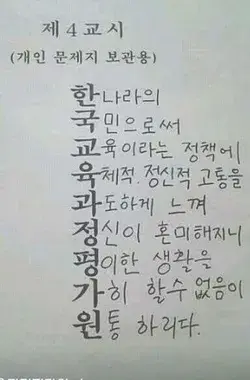 제 4 교시
(개인 문제지 보관용)
한나라의
국민으로써
교육이라는 정책에
육체적.정신적 고통을
과도하게 느껴
정신이 혼미해지니
평이한 생활을
가히 할수 없음이
원통 하리다.